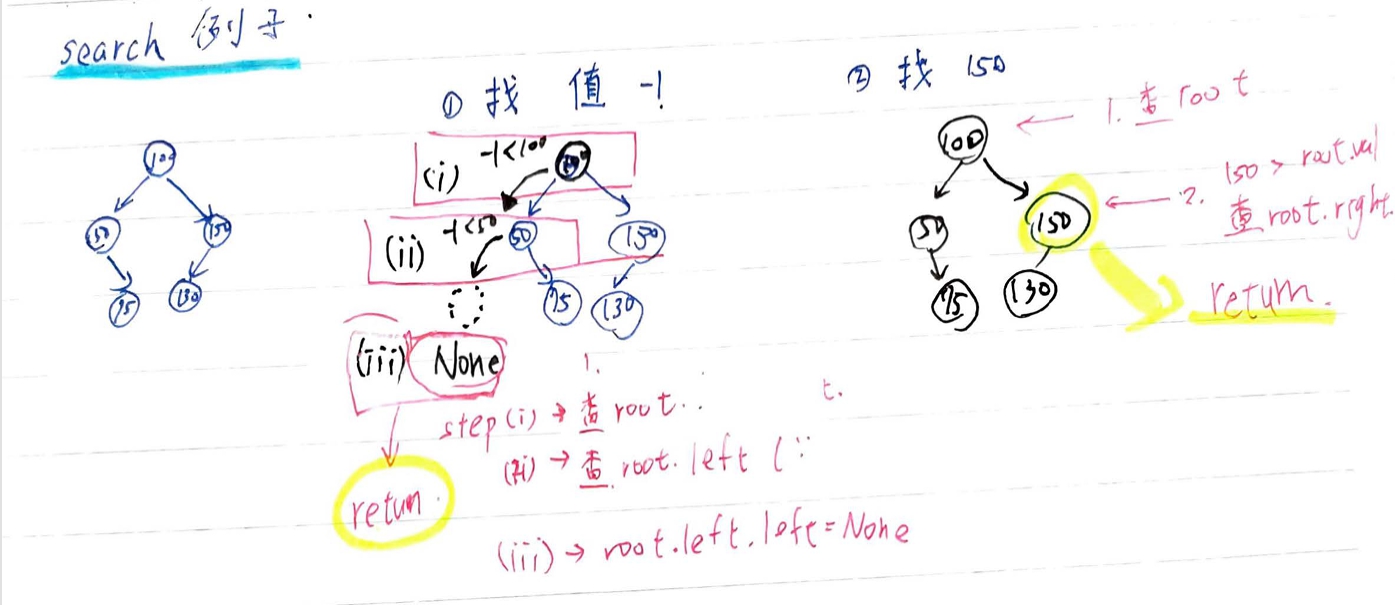 search 例子.
① 找 值 -1
② 找 150
100
50
150
75
130
(i) -1<100
100
(ii) -1<50
50
150
75
130
(iii) None
return.
1.
step (i) → 查 root..
t.
(ii) → 查 root.left (
(iii) → root.left.left=None
100
← 1. 查 root
50
150
← 2. 150 > root.val
查 root.right.
75
130
return.